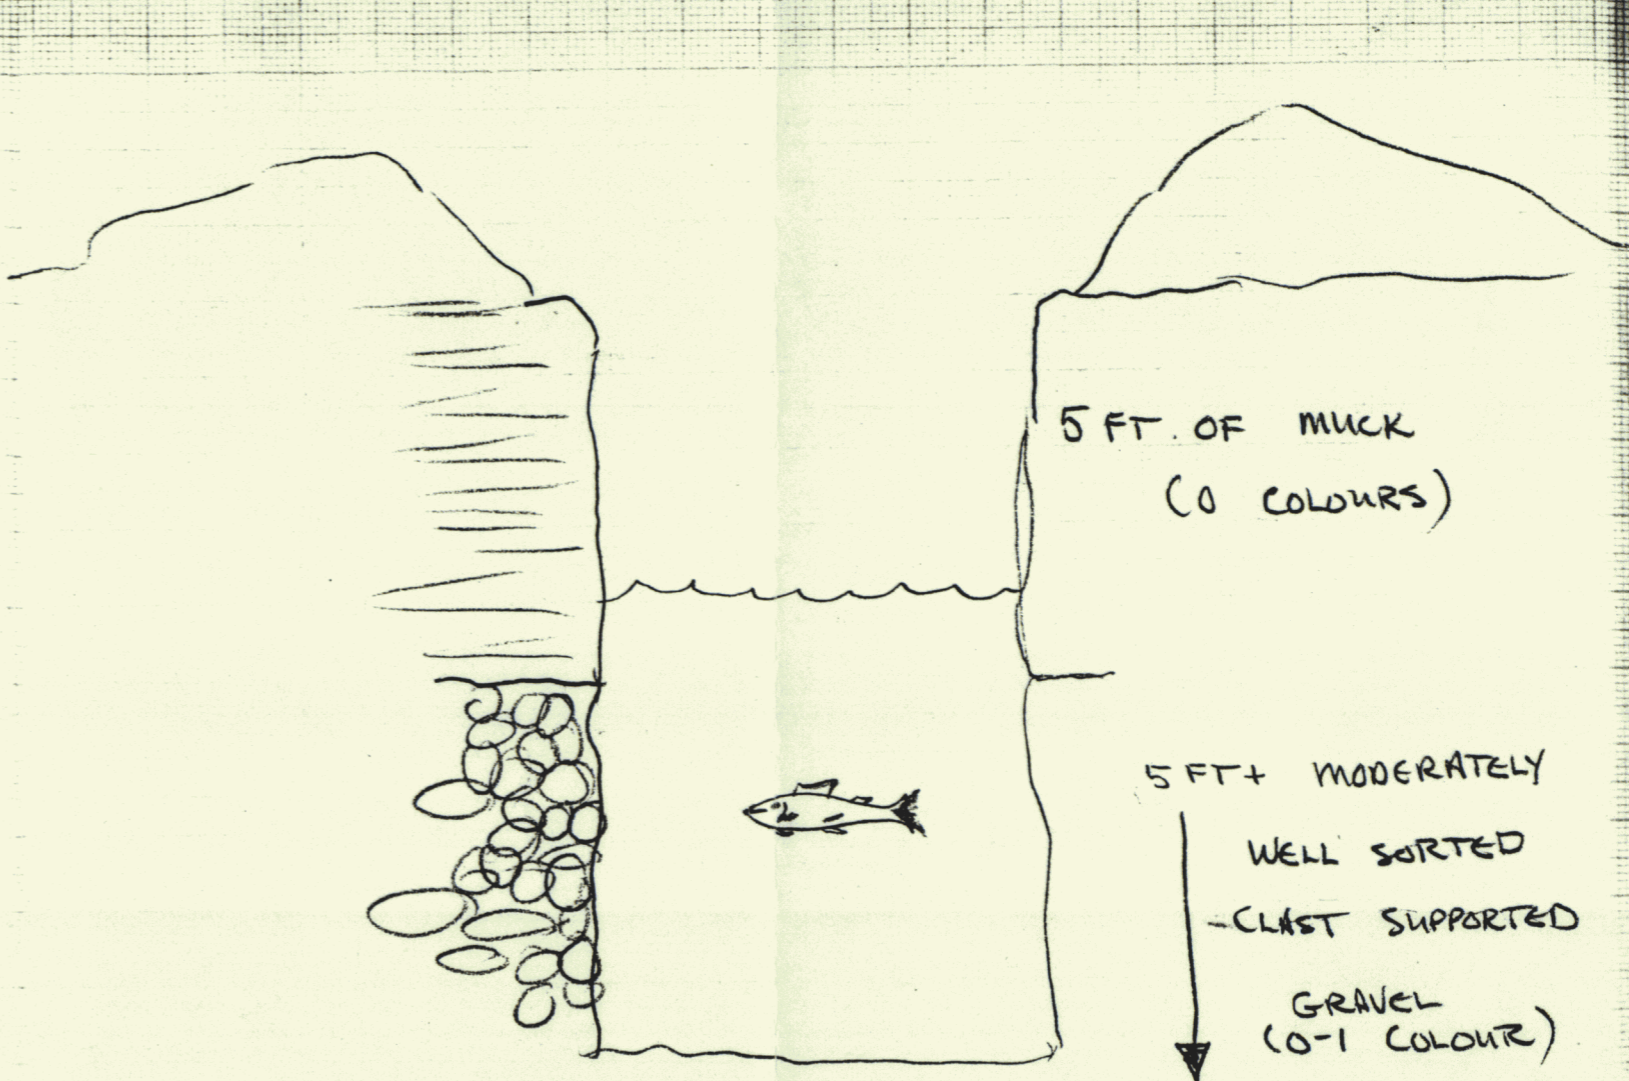 5 FT. OF MUCK
(0 COLOURS)
5 FT+ MODERATELY
WELL SORTED
CLAST SUPPORTED
GRAVEL
(0-1 COLOUR)